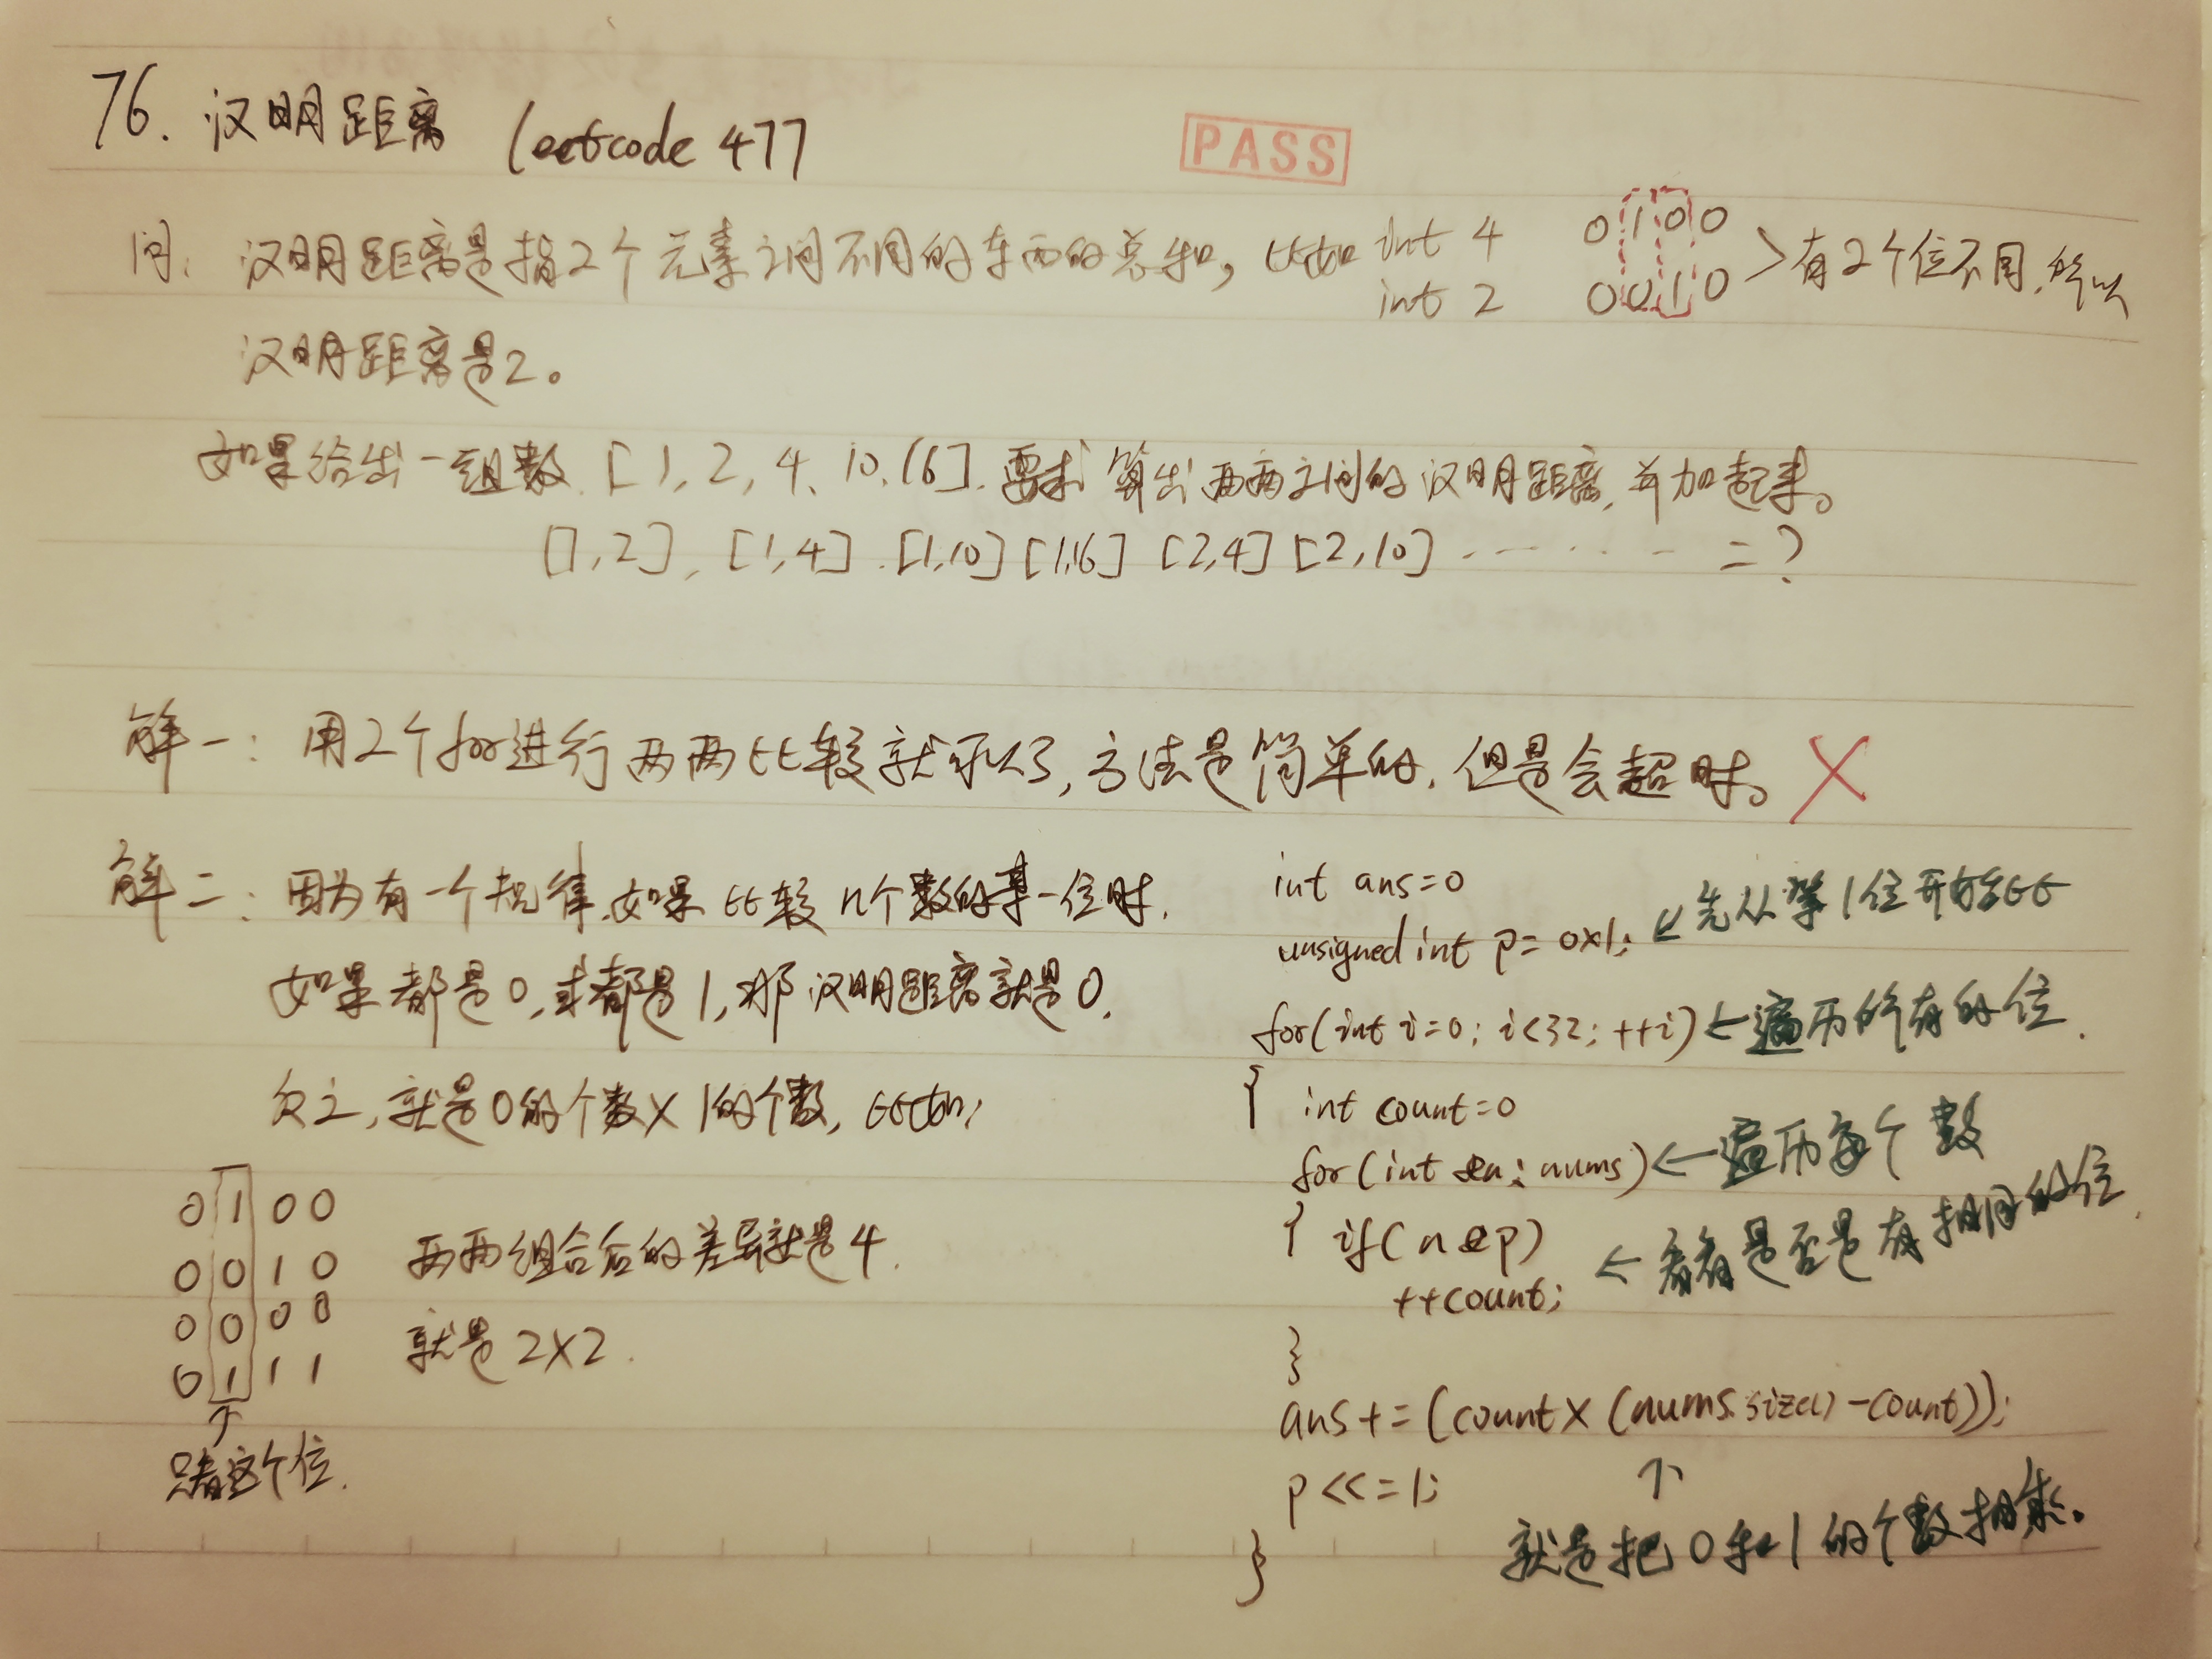 76. 汉明距离 leetcode 477
PASS
问: 汉明距离是指2个元素之间不同的东西的总和, 比如 int 4 0100 > 有2个位不同, 所以
int 2 0010
汉明距离是2。
如果给出一组数 [1, 2, 4, 10, 16]. 要求算出两两之间的汉明距离, 并加起来。
[1,2], [1,4]. [1,10] [1,16] [2,4] [2,10] ...... = ?
解一: 用2个for进行两两比较就可以了, 方法是简单的, 但是会超时。 X
解二: 因为有一个规律, 如果比较n个数的某一位时,
如果都是0, 或都是1, 那汉明距离就是0.
反之, 就是0的个数X1的个数, 比如:
0 1 0 0
0 0 1 0
0 0 0 0
0 1 1 1
↑
只看这个位.
两两组合后的差异就是4.
就是2X2.
int ans=0
unsigned int p = 0x1; ← 先从第1位开始比
for(int i=0; i<32; ++i) ← 遍历所有的位.
{ int count=0
for(int &n: nums) ← 遍历每个数
{ if(n&p)
++count; ← 看看是否是有相同的位.
}
ans += (count X (nums.size() - count));
p <<= 1; ↑
} 就是把0和1的个数相乘。